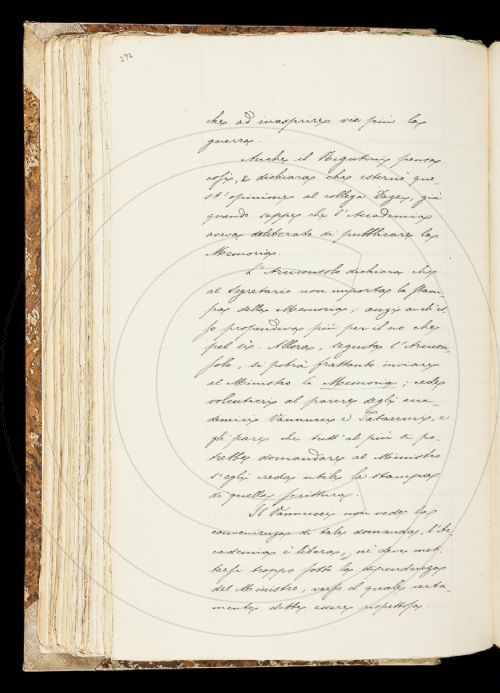 292
che ad inasprire vie più la
guerra.
Anche il Rigutini pensa
così, e dichiara che esternò que-
st'opinione al collega Dazzi, già
quando seppe che l'Accademia
aveva deliberato di pubblicare la
Memoria.
L'Arciconsolo dichiara che
al Segretario non importa la stam-
pa della Memoria; anzi anch'es-
so propendeva più per il no che
pel sì. Allora, seguita l'Arcicon-
solo, si potrà frattanto inviare
al Ministro la Memoria; cede
volentieri al parere degli acca-
demici Vannucci e Tabarrini, e
gli pare che tutt'al più si po-
trebbe domandare al Ministro
s'egli creda utile la stampa
di quella scrittura.
Il Vannucci non vede la
convenienza di tale domanda, l'Ac-
cademia è libera, nè deve met-
tersi troppo sotto la dipendenza
del Ministro, verso il quale certa-
mente debbe essere rispettosa.